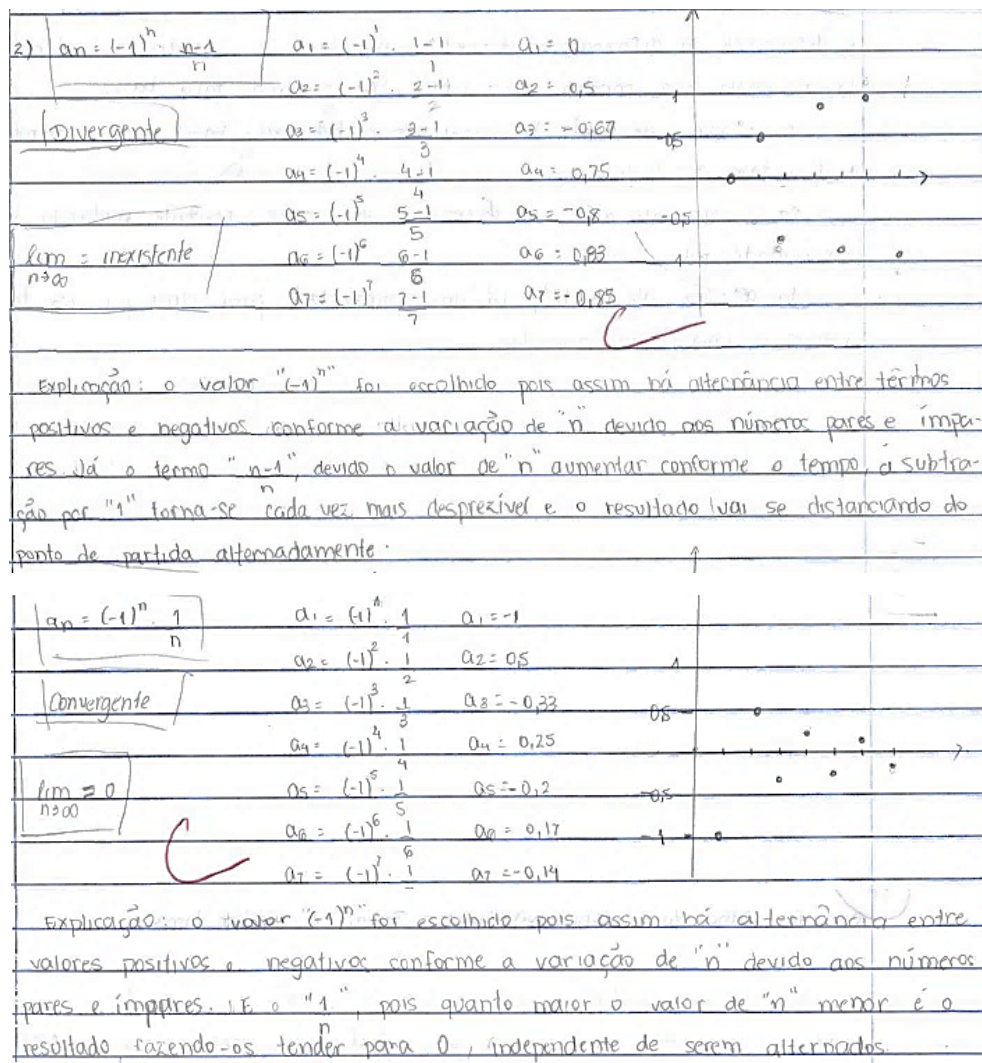 2) an = (-1)^n . n-1/n    a1 = (-1)^1 . 1-1/1    a1 = 0
a2 = (-1)^2 . 2-1/2    a2 = 0,5    1
Divergente    a3 = (-1)^3 . 3-1/3    a3 = -0,67    0,5
a4 = (-1)^4 . 4-1/4    a4 = 0,75
a5 = (-1)^5 5-1/5    a5 = -0,8    -0,5
lim n→∞ = inexistente    a6 = (-1)^6 6-1/6    a6 = 0,83    -1
a7 = (-1)^7 7-1/7    a7 = -0,85
Explicação: o valor "(-1)^n" foi escolhido pois assim há alternância entre termos
positivos e negativos conforme a variação de "n" devido aos números pares e ímpa-
res. Já o termo "n-1/n", devido o valor de "n" aumentar conforme o tempo, a subtra-
ção por "1" torna-se cada vez mais desprezível e o resultado vai se distanciando do
ponto de partida alternadamente.
an = (-1)^n . 1/n    a1 = (-1)^1 . 1/1    a1 = -1
a2 = (-1)^2 . 1/2    a2 = 0,5    1
Convergente    a3 = (-1)^3 . 1/3    a3 = -0,33    0,5
a4 = (-1)^4 . 1/4    a4 = 0,25
lim n→∞ = 0    a5 = (-1)^5 . 1/5    a5 = -0,2    -0,5
a6 = (-1)^6 . 1/6    a6 = 0,17    -1
a7 = (-1)^7 . 1    a7 = -0,14
Explicação: o valor "(-1)^n" foi escolhido pois assim há alternância entre
valores positivos e negativos conforme a variação de "n" devido aos números
pares e ímpares. E o "1/n", pois quanto maior o valor de "n" menor é o
resultado fazendo-os tender para 0, independente de serem alternados.